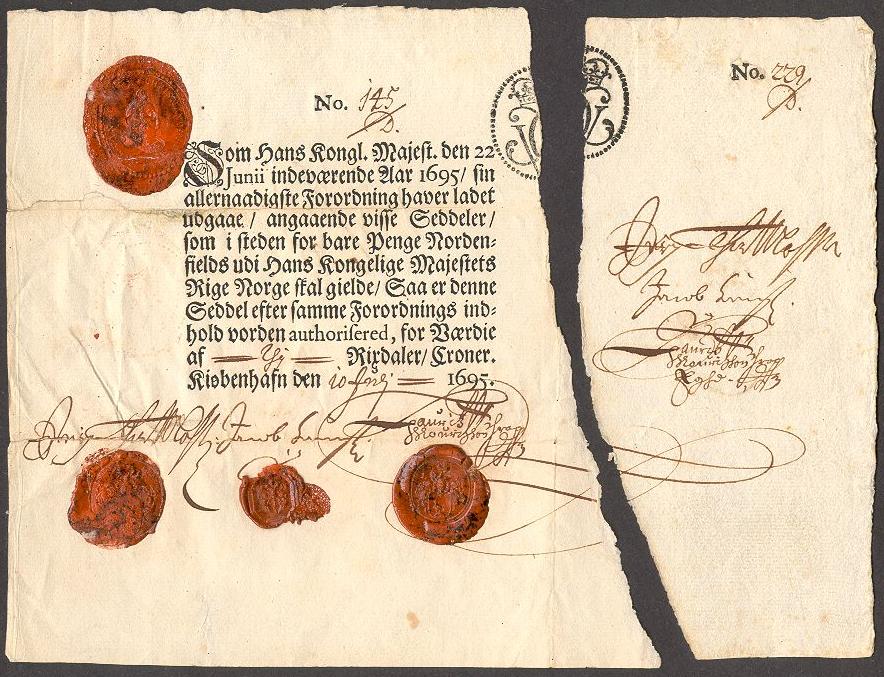 No. 145
D.
Som Hans Kongl. Majest. den 22
Junii indeværende Aar 1695/ sin
allernaadigste Forordning haver ladet
udgaae / angaaende visse Seddeler/
som i steden for bare Penge Norden-
fields udi Hans Kongelige Majestets
Rige Norge skal gielde/ Saa er denne
Seddel efter samme Forordnings ind-
hold vorden authorisered, for Værdie
af Rixdaler/ Croner.
Kiøbenhafn den 10 1695.
Jacob
No. 229
D.
Jacob